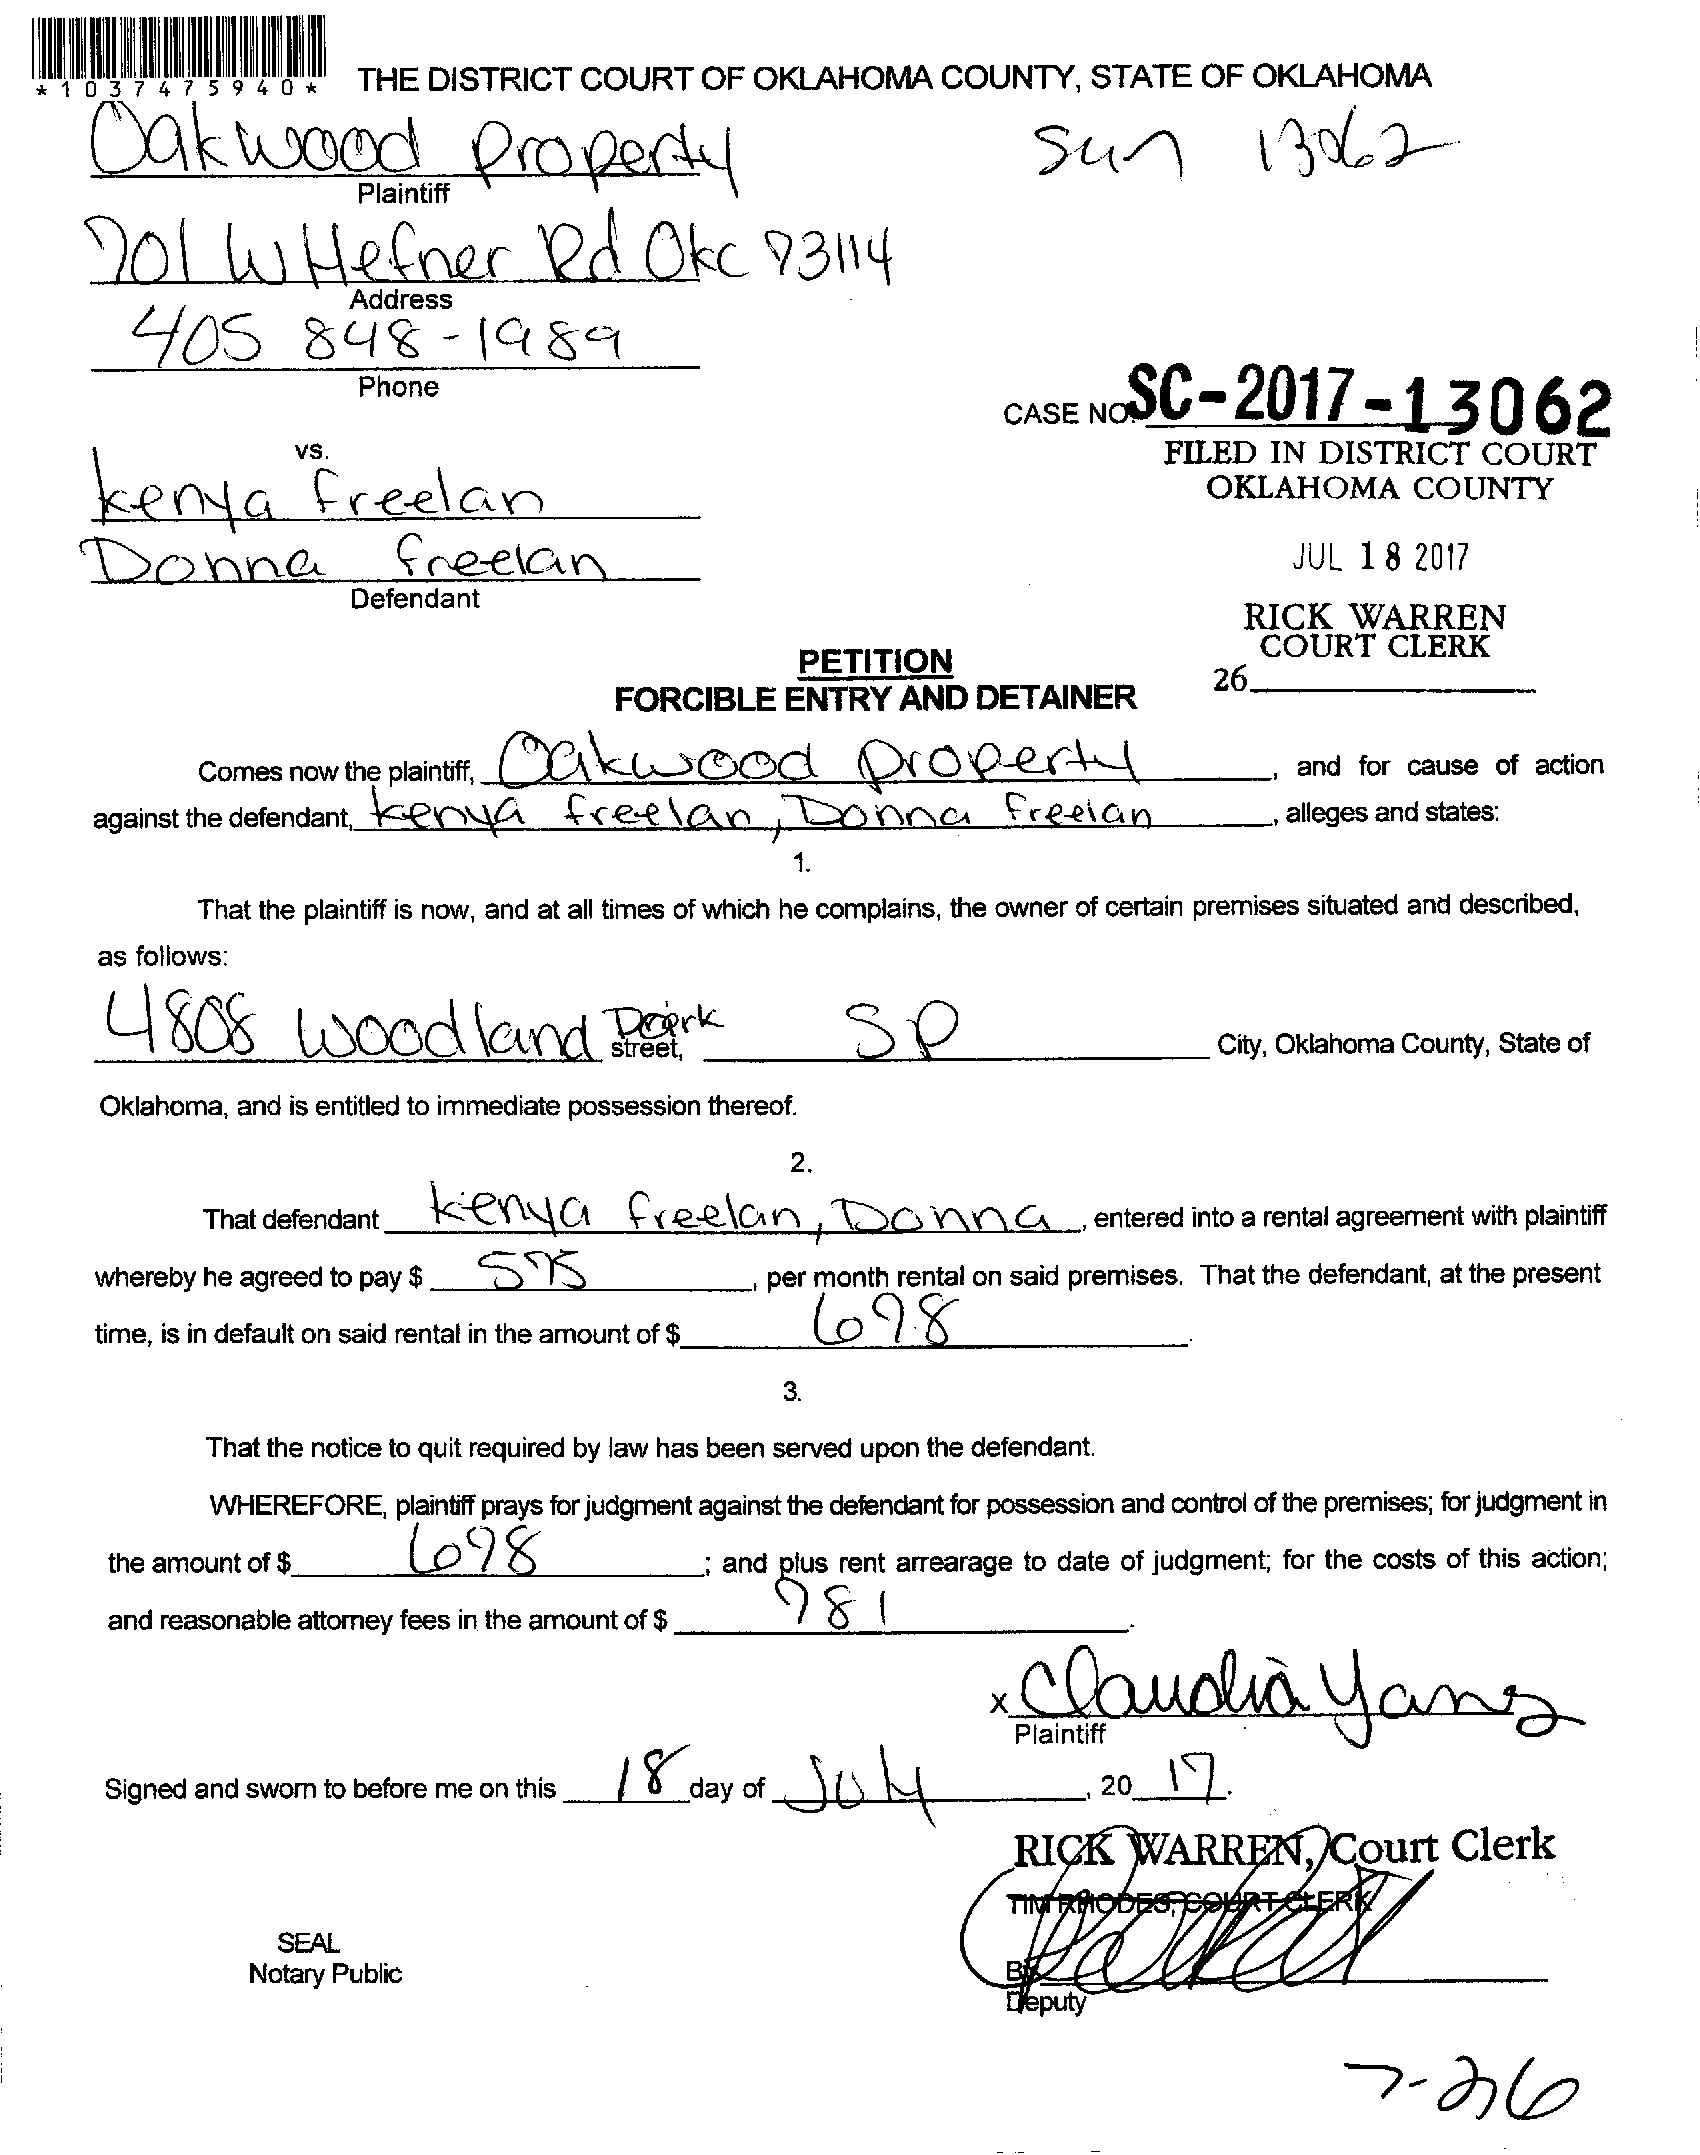 *1037475940*
THE DISTRICT COURT OF OKLAHOMA COUNTY, STATE OF OKLAHOMA
Oakwood Property
Plaintiff
13062
701 W Hefner Rd Okc 73114
Address
405 848-1989
Phone
CASE NO. SC-2017-13062
FILED IN DISTRICT COURT
OKLAHOMA COUNTY
JUL 18 2017
RICK WARREN
COURT CLERK
26
vs.
Kenya Freelan
Donna Freelan
Defendant
PETITION
FORCIBLE ENTRY AND DETAINER
Comes now the plaintiff, Oakwood Property, and for cause of action
against the defendant, Kenya Freelan, Donna Freelan, alleges and states:
1.
That the plaintiff is now, and at all times of which he complains, the owner of certain premises situated and described,
as follows:
4808 Woodland street, SP City, Oklahoma County, State of
Oklahoma, and is entitled to immediate possession thereof.
2.
That defendant Kenya Freelan, Donna, entered into a rental agreement with plaintiff
whereby he agreed to pay $ 575, per month rental on said premises. That the defendant, at the present
time, is in default on said rental in the amount of $ 698.
3.
That the notice to quit required by law has been served upon the defendant.
WHEREFORE, plaintiff prays for judgment against the defendant for possession and control of the premises; for judgment in
the amount of $ 698; and plus rent arrearage to date of judgment; for the costs of this action;
and reasonable attorney fees in the amount of $ 781.
x Claudia Yanz
Plaintiff
Signed and sworn to before me on this 18 day of July, 2017.
RICK WARREN, Court Clerk
TIM RHODES, COURT CLERK
SEAL
Notary Public
By
Deputy
7-26